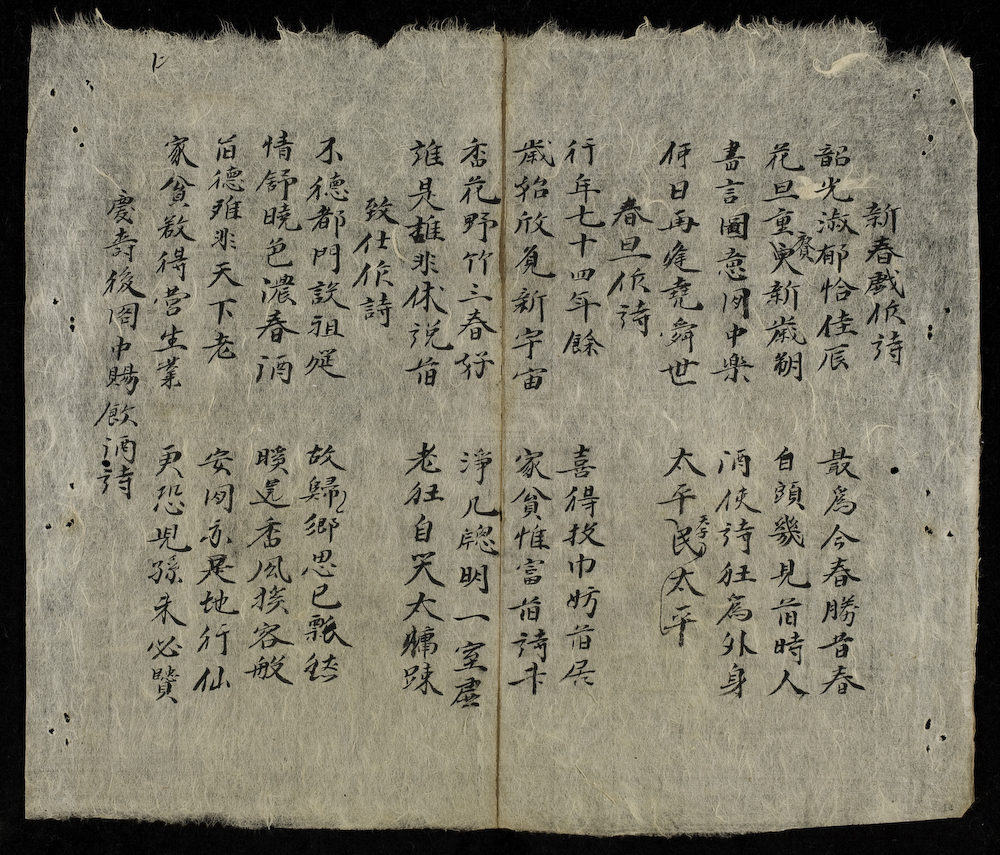 新春戲作詩
韶光淑郁恰佳辰 最爲今春勝昔春
花旦重賡新歲朔 白頭幾見舊時人
書言圖意閒中樂 酒俠詩狂爲外身
何日再逢堯舜世 太平民天子太平
春旦作詩
行年七十四年餘 喜得投巾妨舊居
歲始欣覓新宇宙 家貧惟富舊詩書
香花野竹三春好 淨几窻明一室虛
誰是雄非休說舊 老狂自笑太慵疎
致仕作詩
不德都門設祖筵 故歸鄉思已飄然
情舒曉色濃春酒 暖送香風撲客船
舊德雖非天下老 安閒亦是地行仙
家貧教得營生業 更恐兒孫未必賢
慶壽後閣中賜飲酒詩